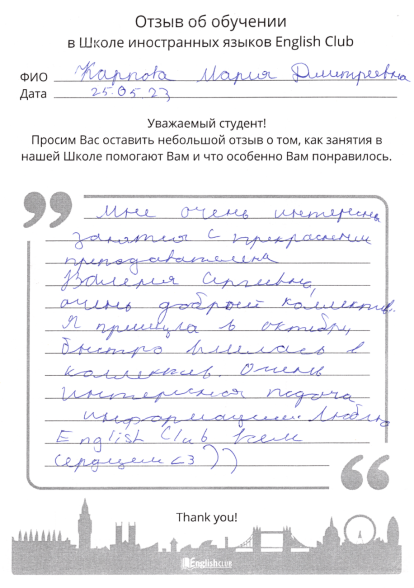 Отзыв об обучении
в Школе иностранных языков English Club
ФИО Карпова Мария Дмитреевна
Дата 25.05.23
Уважаемый студент!
Просим Вас оставить небольшой отзыв о том, как занятия в
нашей Школе помогают Вам и что особенно Вам понравилось.
Мне очень интересны
занятия с прекрасными
преподавателена
Валерия Сергиевна,
очень добрый коллектив.
Я пришла в октябри,
быстро влилась в
коллектив. Очень
интересная подача
информации. Люблю
English Club всем
сердцем <3 ))
Thank you!
English CLUB